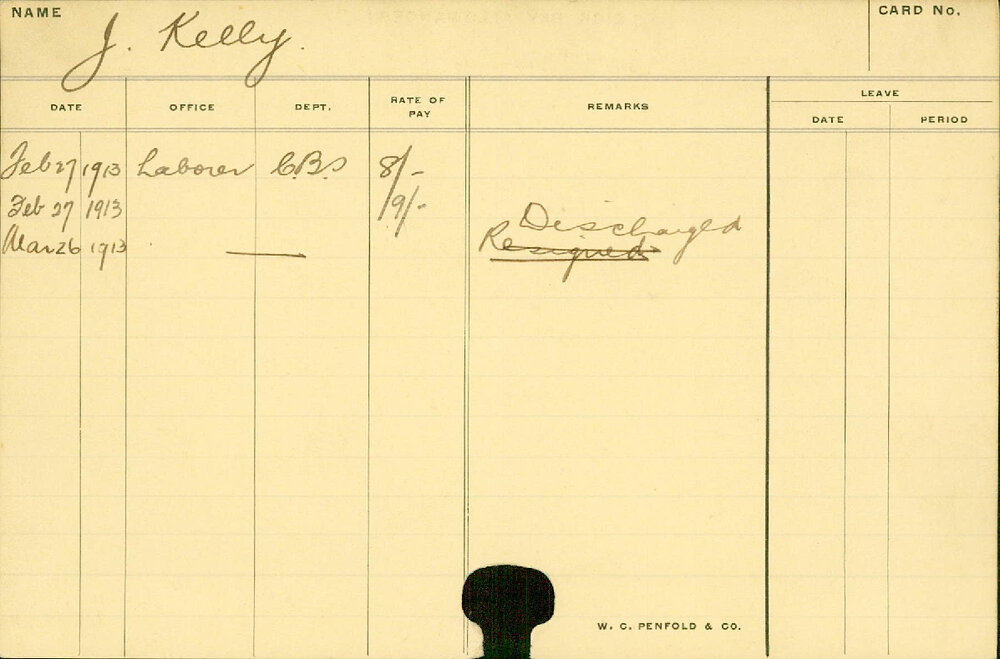 NAME J. Kelly. CARD No.
DATE OFFICE DEPT. RATE OF PAY REMARKS LEAVE
DATE PERIOD
Feb 27 1913 Laborer C.B.S 8/-
Feb 27 1913 9/- Discharged
Mar 26 1913 Resigned
W. C. PENFOLD & CO.